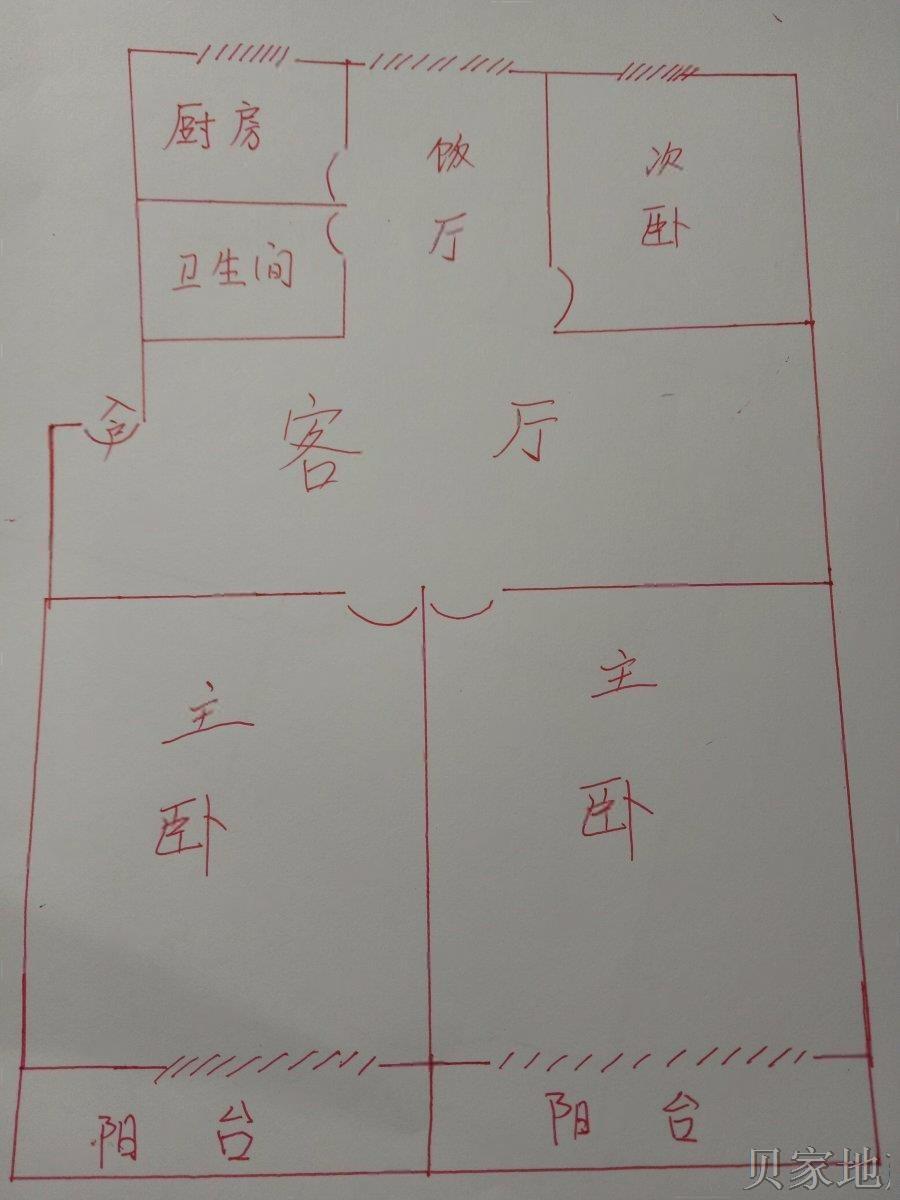 厨房
饭厅
次卧
卫生间
入户
客厅
主卧
主卧
阳台
阳台
贝家地